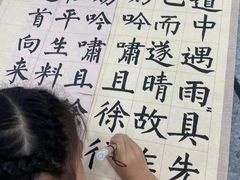 道中遇雨〻具先
已而遂晴故
吟嘯且徐行
吟嘯且
平生料
首向来